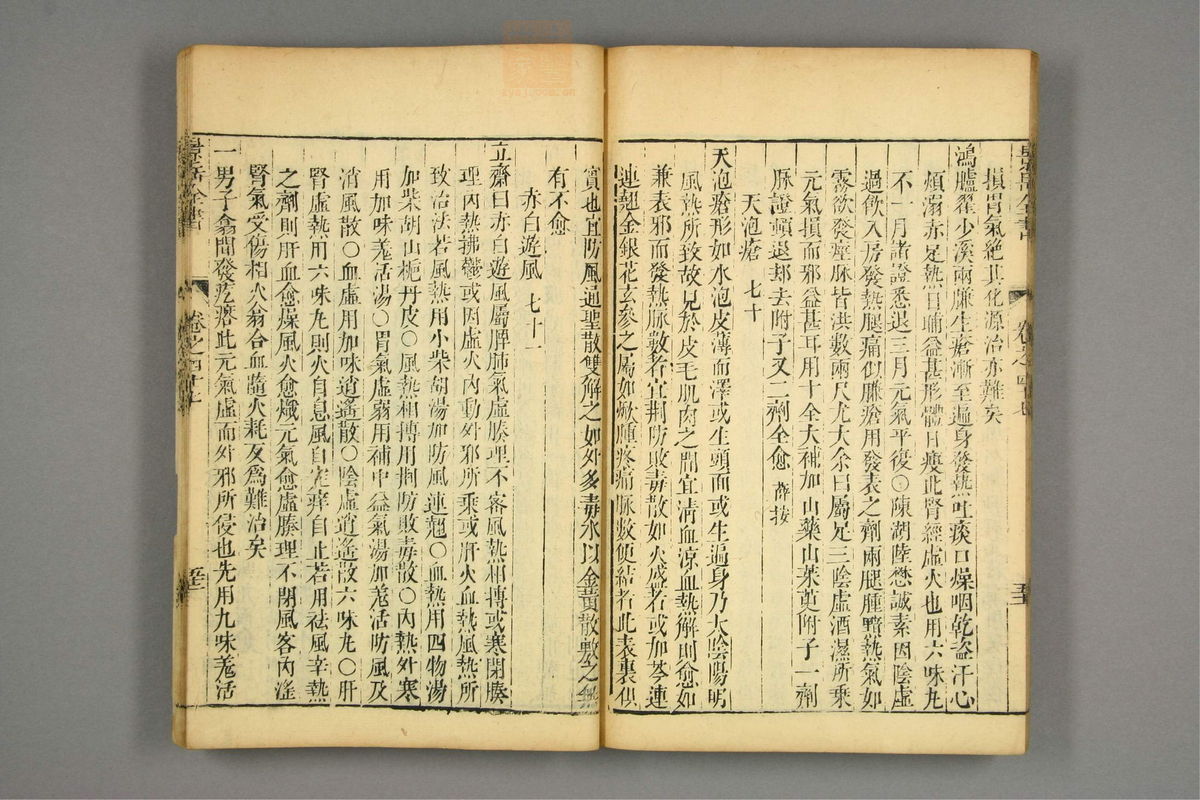 景岳全書
卷之四十七
五十二
損胃氣絶其化源治亦難矣
鴻臚翟少溪兩臁生瘡漸至遍身發熱吐痰口燥咽乾盗汗心
煩溺赤足熱日晡益甚形體日瘦此腎經虛火也用六味丸
不一月諸證悉退三月元氣平復○陳湖陸懋誠素因陰虛
過飲入房發熱腿痛似臁瘡用發表之劑兩腿腫黯熱氣如
霧欲發痙脉皆洪數兩尺尤大余曰屬足三陰虛酒濕所乘
元氣損而邪益甚耳用十全大補加山藥山茱萸附子一劑
脉證頓退却去附子又二劑全愈 薛按
天泡瘡 七十
天泡瘡形如水泡皮薄而澤或生頭面或生遍身乃太陰陽明
風熱所致故見於皮毛肌肉之間宜清血凉血熱解則愈如
兼表邪而發熱脉數者宜荆防敗毒散如火盛者或加芩連
連翹金銀花玄參之屬如焮腫疼痛脉數便結者此表裏俱
實也宜防風通聖散雙解之如外多毒水以金黄散敷之無
有不愈
赤白遊風 七十一
立齋曰赤白遊風屬脾肺氣虛腠理不密風熱相搏或寒閉腠
理内熱拂鬱或因虛火内動外邪所乘或肝火血熱風熱所
致治法若風熱用小柴胡湯加防風連翹○血熱用四物湯
加柴胡山梔丹皮○風熱相搏用荆防敗毒散○内熱外寒
用加味羗活湯○胃氣虛弱用補中益氣湯加羗活防風及
消風散○血虛用加味逍遙散○陰虛逍遙散六味丸○肝
腎虛熱用六味丸則火自息風自定痒自止若用祛風辛熱
之劑則肝血愈燥風火愈熾元氣愈虛腠理不閉風客内淫
腎氣受傷相火翕合血隨火耗反爲難治矣
一男子秋間發疙瘩此元氣虛而外邪所侵也先用九味羗活
景岳全書
卷之四十七